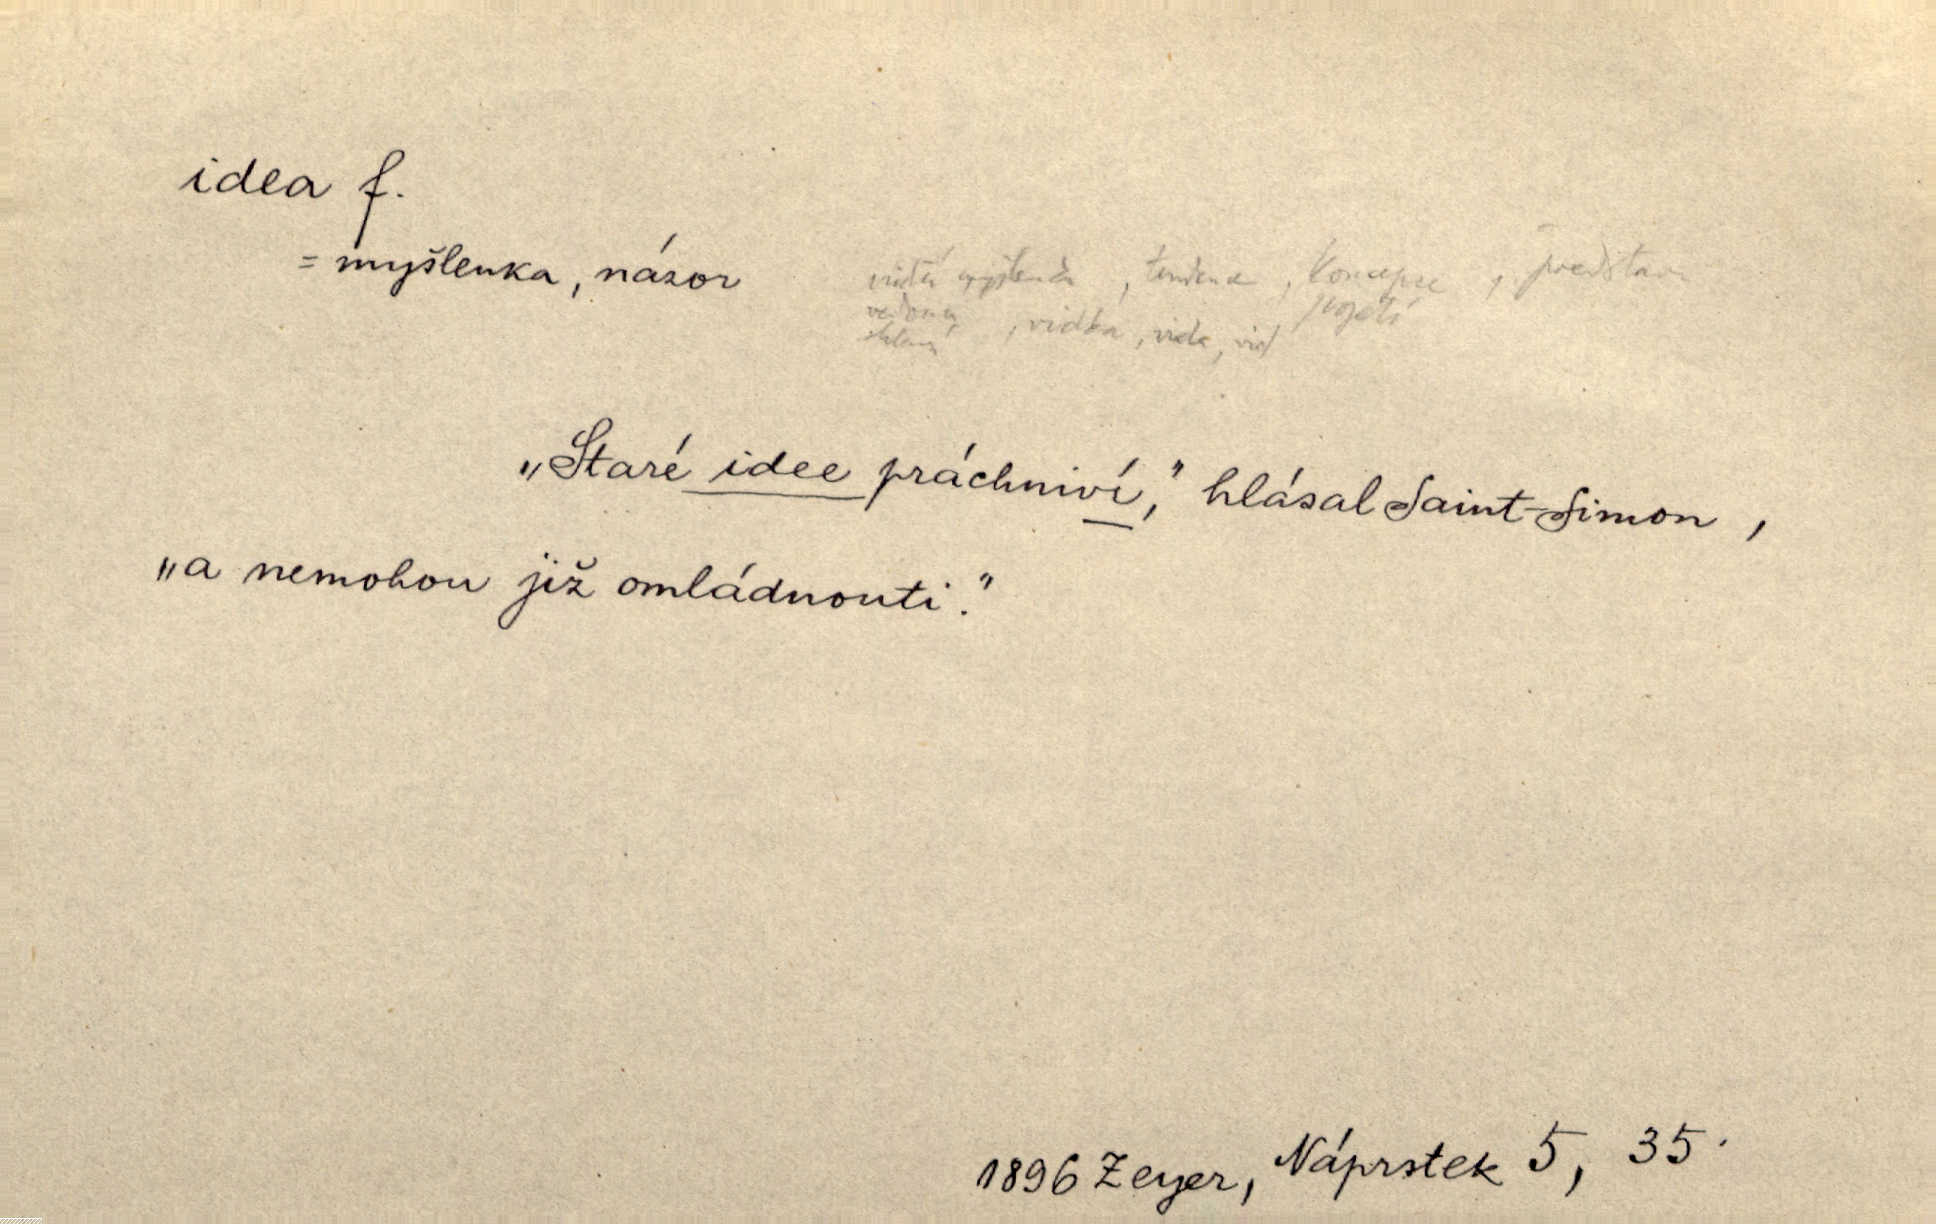 idea f.
= myšlenka, názor
, tendence, koncepce, představa
pojetí
, vidba, vida, vid
„Staré idee práchniví,” hlásal Saint-Simon,
„a nemohou již omládnouti.”
1896 Zeyer, Náprstek 5, 35.